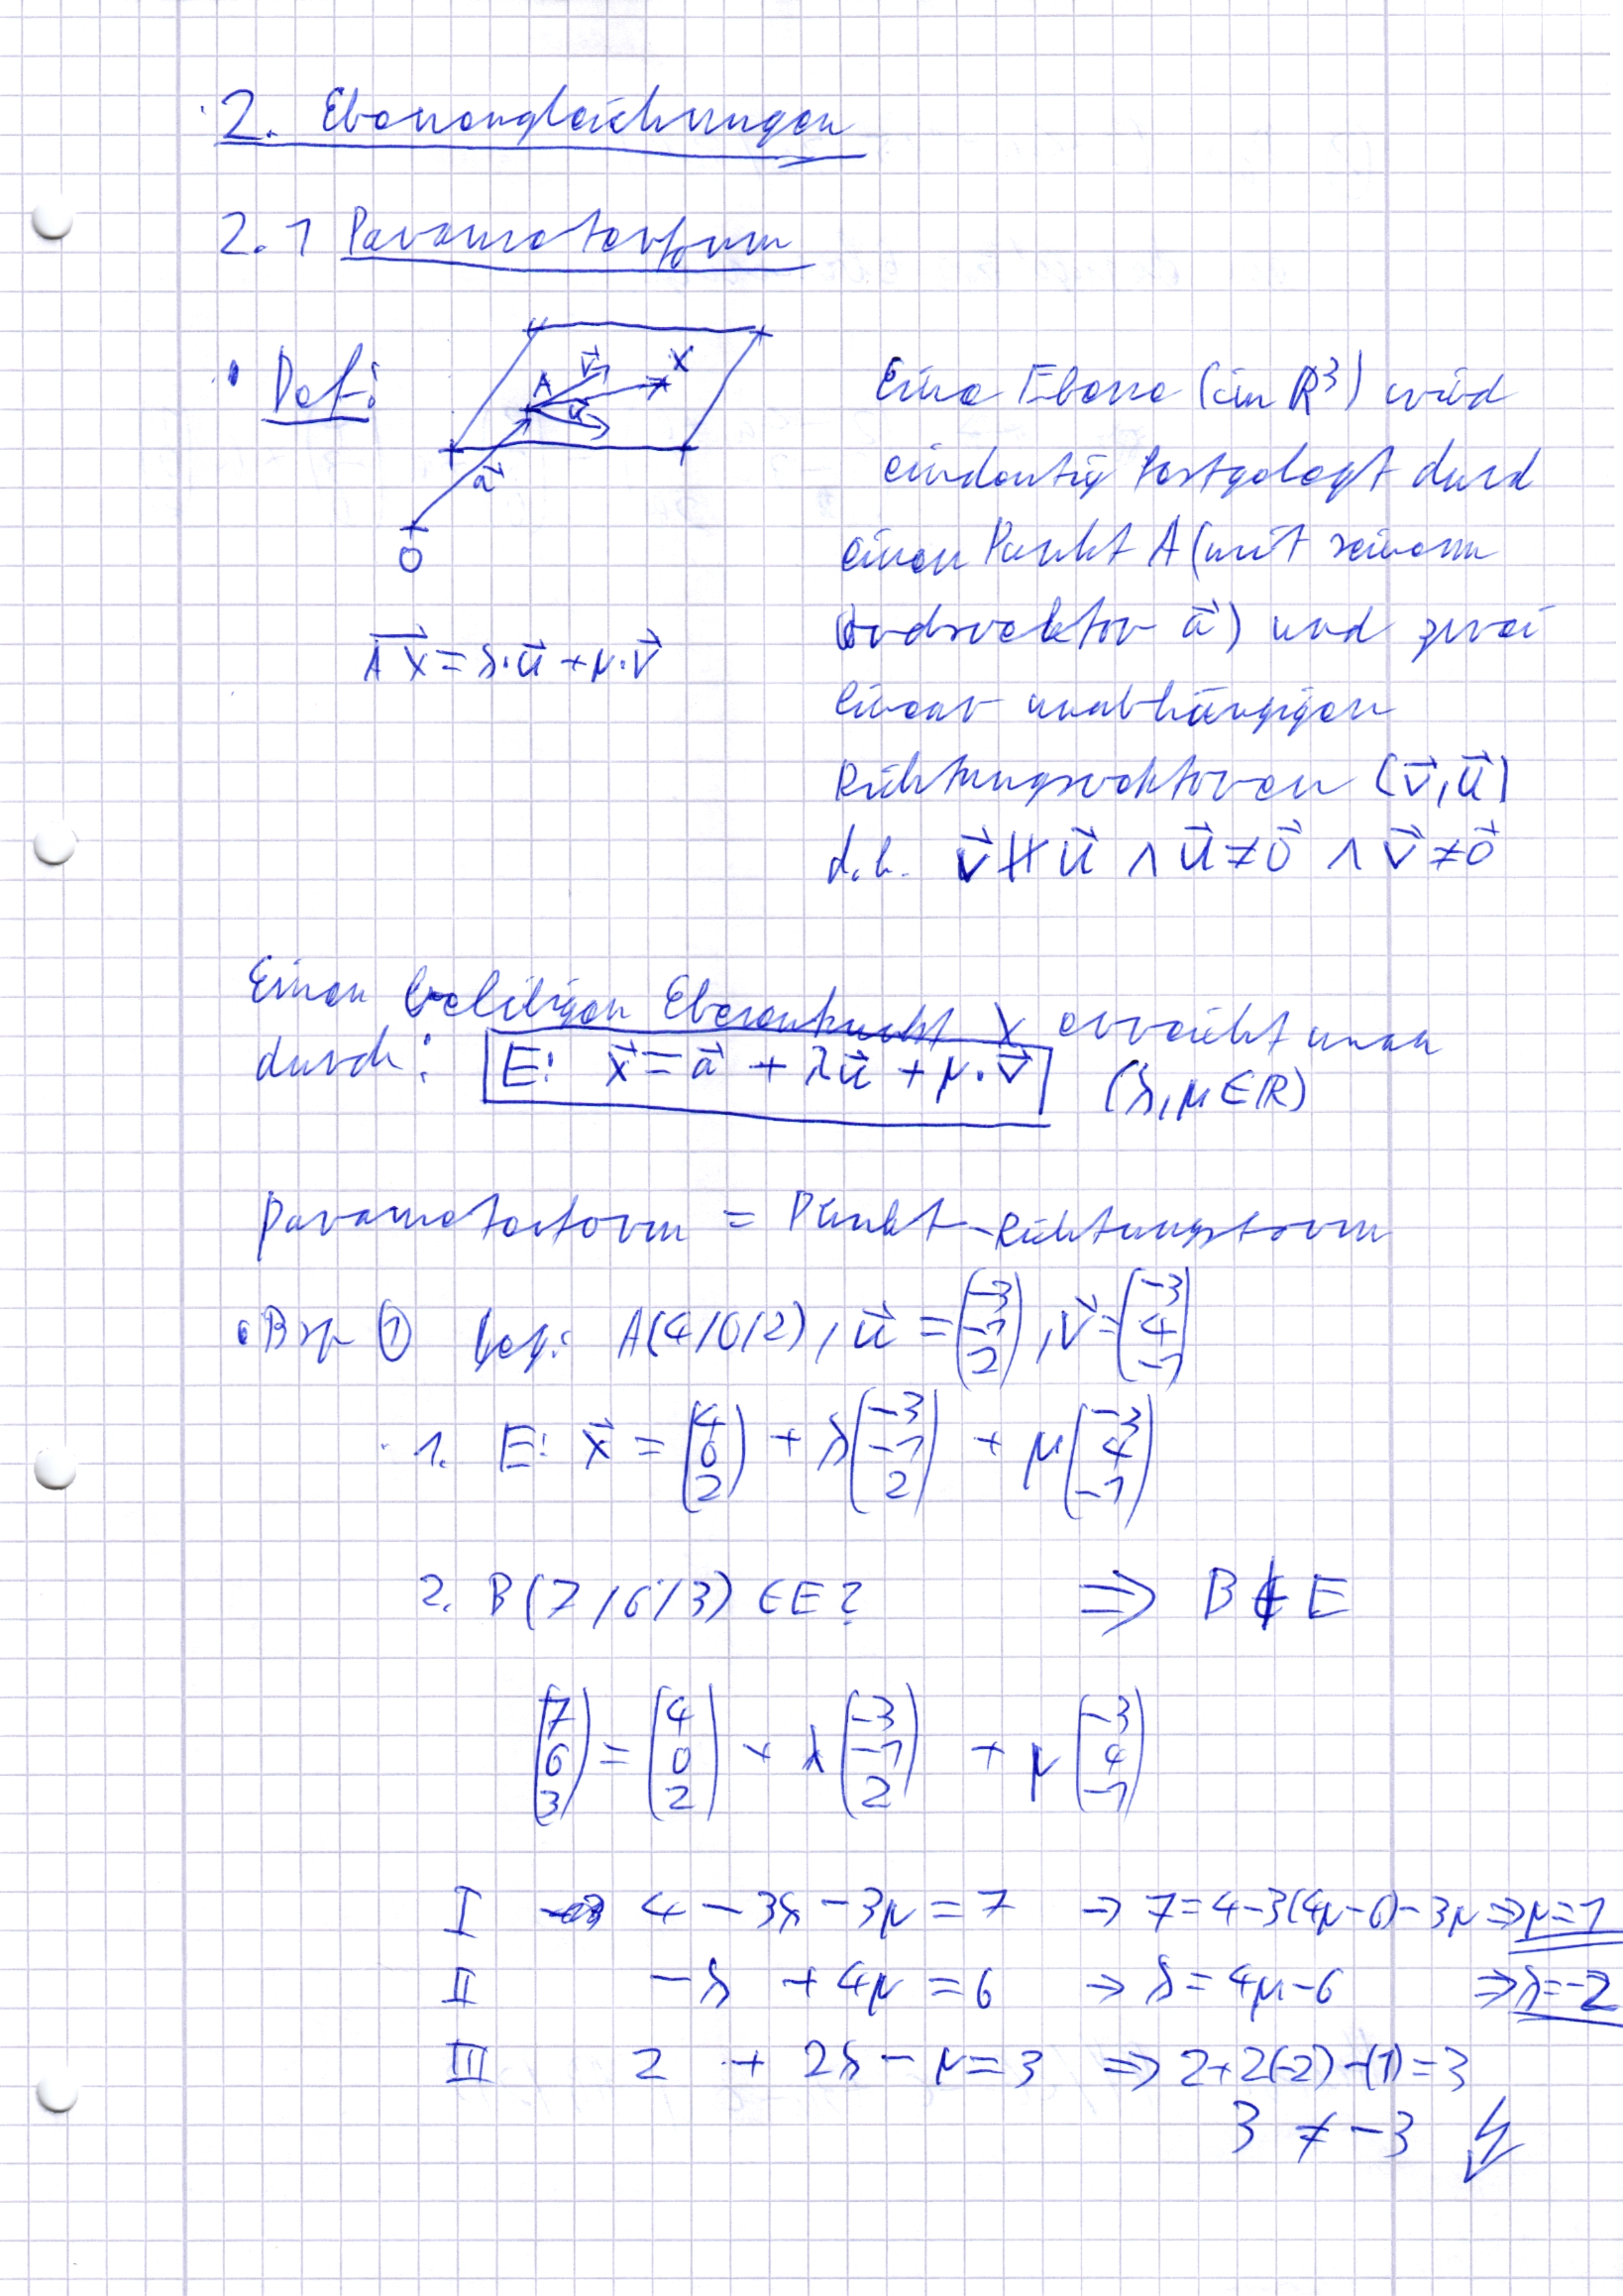 2. Ebenengleichungen
2.1 Parameterform
• Def:
A
v⃗
u⃗
X
a⃗
O
Eine Ebene (im ℝ³) wird
eindeutig festgelegt durch
einen Punkt A (mit seinem
Ortsvektor a⃗) und zwei
linear unabhängigen
Richtungsvektoren (v⃗, u⃗)
d.h. v⃗ ∦ u⃗ ∧ u⃗ ≠ 0⃗ ∧ v⃗ ≠ 0⃗
AX⃗ = λ·u⃗ + μ·v⃗
Einen beliebigen Ebenenpunkt X erreicht man
durch: E: x⃗ = a⃗ + λu⃗ + μ·v⃗ (λ, μ ∈ ℝ)
Parameterform = Punkt-Richtungsform
• Bsp ① geg.: A(4/0/2), u⃗ = (-3 -1 2), v⃗ = (-3 4 -1)
1. E: x⃗ = (4 0 2) + λ(-3 -1 2) + μ(-3 4 -1)
2. B(7/6/3) ∈ E? ⇒ B ∉ E
(7 6 3) = (4 0 2) + λ(-3 -1 2) + μ(-3 4 -1)
I 4 - 3λ - 3μ = 7 → 7 = 4-3(4μ-6)-3μ ⇒ μ=1
II -λ + 4μ = 6 → λ = 4μ-6 ⇒ λ=-2
III 2 + 2λ - μ = 3 ⇒ 2+2(-2)-(1)=3
3 ≠ -3 ↯